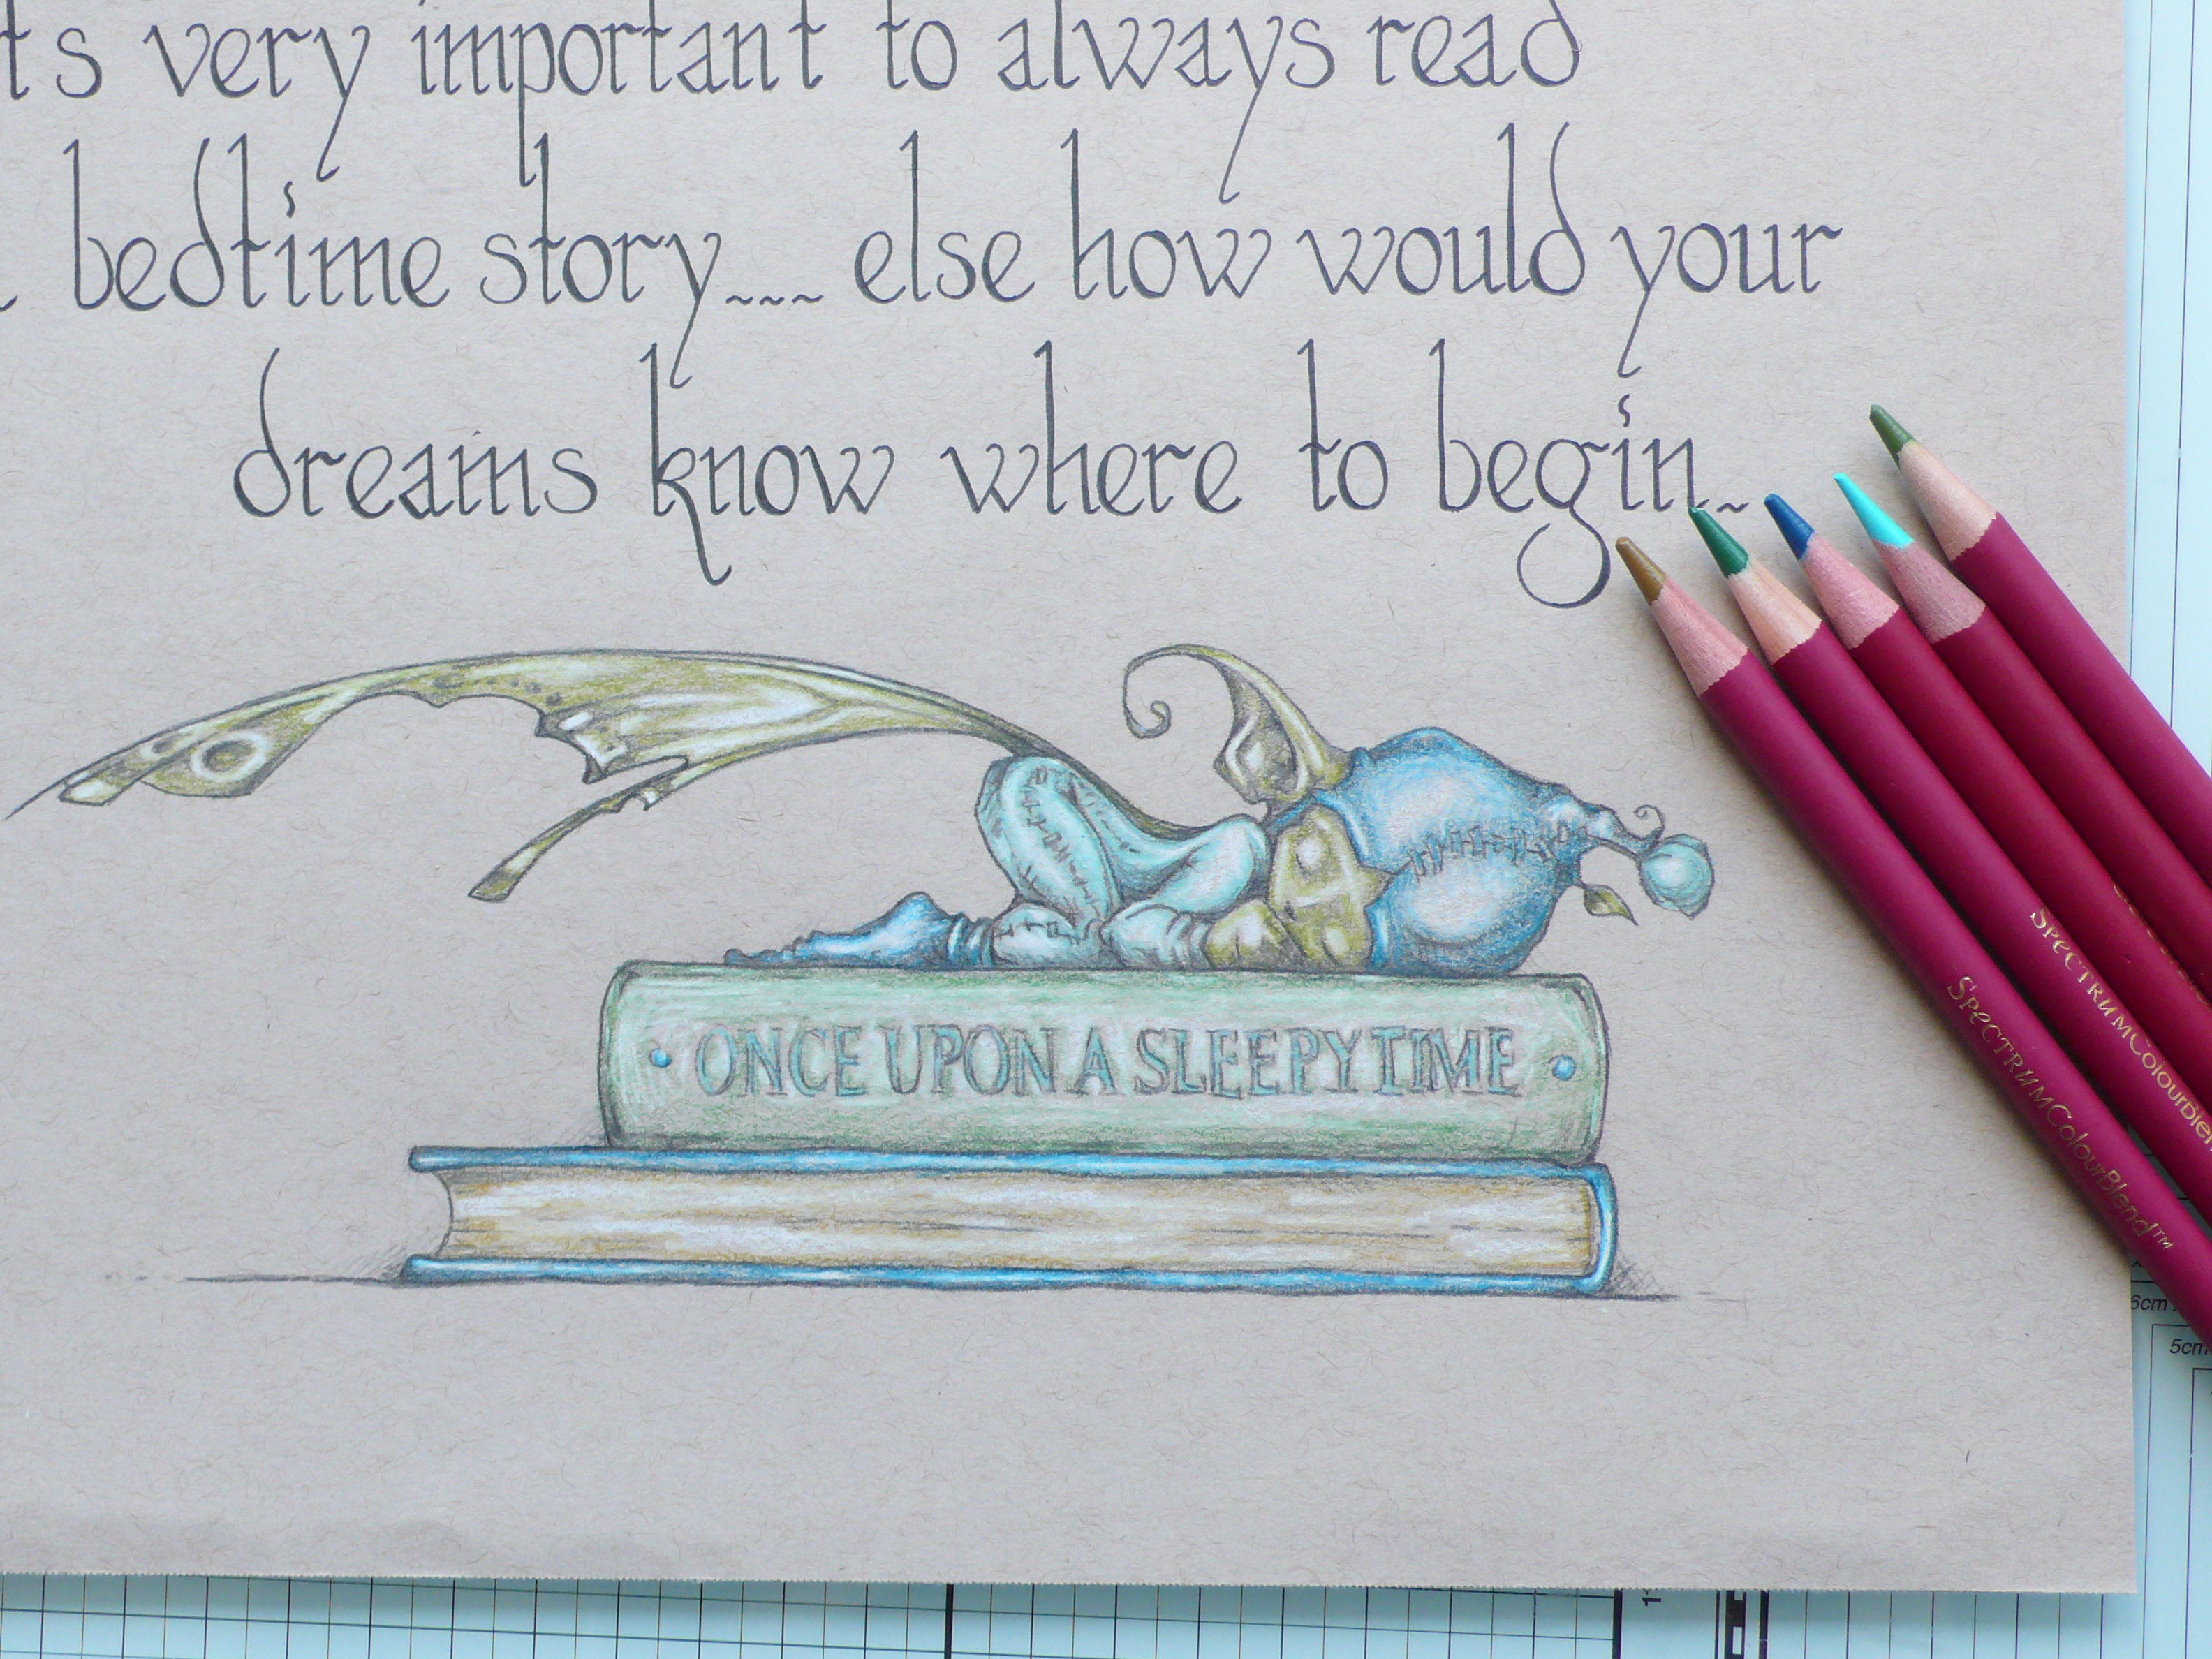 ts very important to always read
bedtime story.... else how would your
dreams know where to begin..
ONCE UPON A SLEEPY TIME
SPECTRUM ColourBlend™
SPECTRUM ColourBlen
6cm
5cm